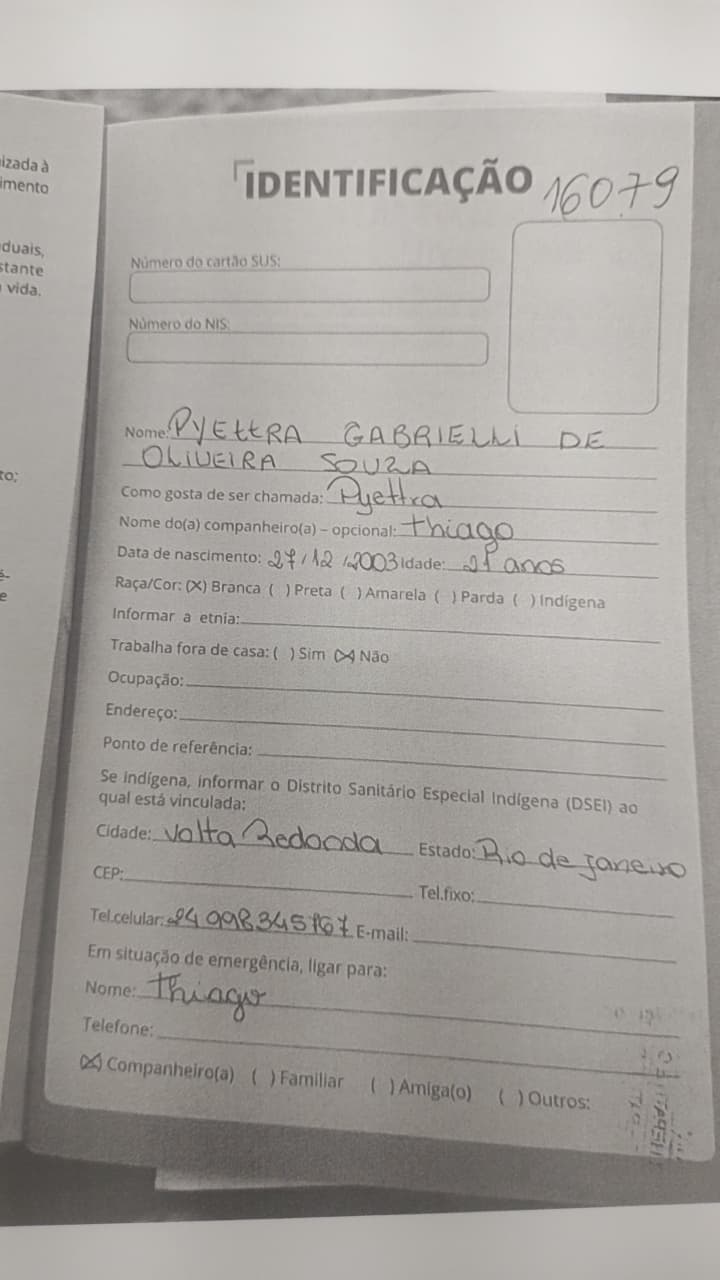 izada à
imento
duais,
stante
vida.
to;
é-
e
IDENTIFICAÇÃO 16079
Número do cartão SUS:
Número do NIS:
Nome: PYETTRA GABRIELLI DE
OLIVEIRA SOUZA
Como gosta de ser chamada: Pyettra
Nome do(a) companheiro(a) – opcional: Thiago
Data de nascimento: 27/12/2003 Idade: 21 anos
Raça/Cor: (X) Branca ( ) Preta ( ) Amarela ( ) Parda ( ) Indígena
Informar a etnia:
Trabalha fora de casa: ( ) Sim (X) Não
Ocupação:
Endereço:
Ponto de referência:
Se indígena, informar o Distrito Sanitário Especial Indígena (DSEI) ao
qual está vinculada:
Cidade: Volta Redonda Estado: Rio de Janeiro
CEP: Tel.fixo:
Tel.celular: 24 998345767 E-mail:
Em situação de emergência, ligar para:
Nome: Thiago
Telefone:
(X) Companheiro(a) ( ) Familiar ( ) Amiga(o) ( ) Outros: